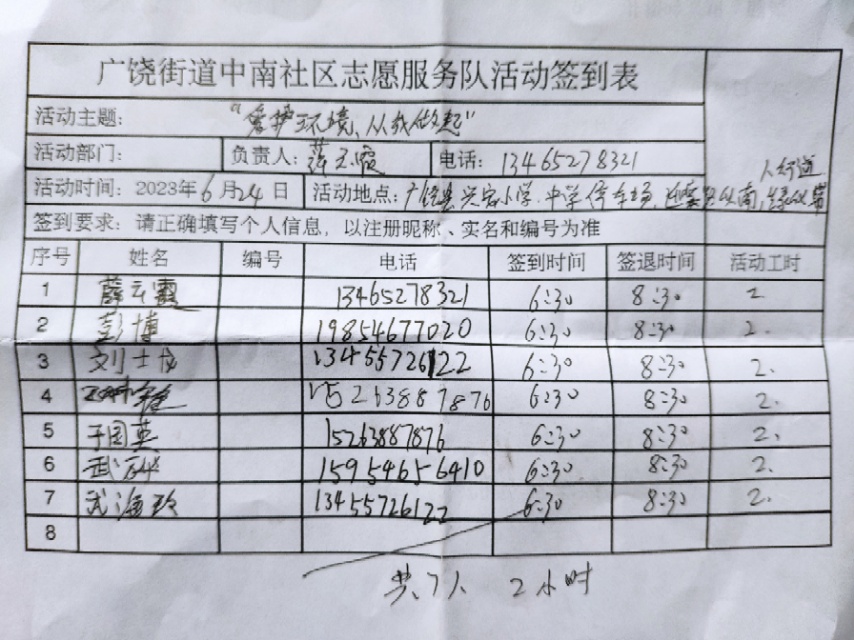 广饶街道中南社区志愿服务队活动签到表
活动主题: "爱护环境、从我做起"
活动部门: 负责人: 薛云霞 电话: 13465278321
人行道
活动时间: 2023年6月24日 活动地点: 广饶县 小学、中学停车场、 南,绿化带
签到要求: 请正确填写个人信息, 以注册昵称、实名和编号为准
序号 姓名 编号 电话 签到时间 签退时间 活动工时
1 薛云霞 13465278321 6:30 8:30 2
2 彭博 19854677020 6:30 8:30 2.
3 刘士 13455726122 6:30 8:30 2.
4 15263887876 6:30 8:30 2.
5 于国英 15263887876 6:30 8:30 2.
6 武 15954656410 6:30 8:30 2.
7 武海玲 13455726122 6:30 8:30 2.
8
共7人 2小时